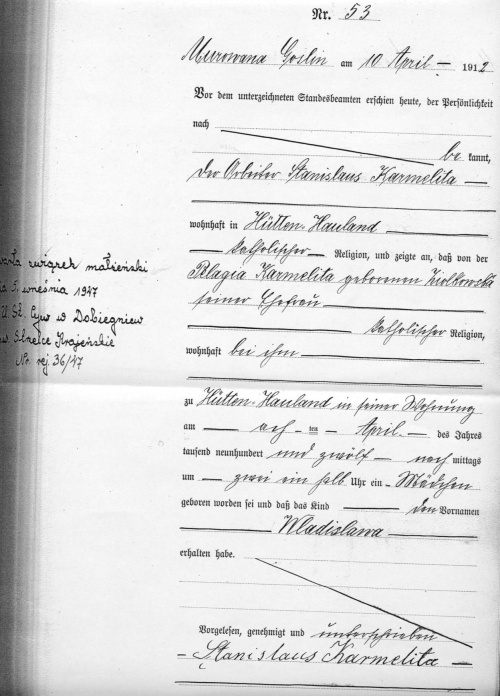 Nr. 53
Murowana Goslin am 10 April 1912
Vor dem unterzeichneten Standesbeamten erschien heute, der Persönlichkeit
nach
be kannt,
der Arbeiter Stanislaus Karmelita
wohnhaft in Hütten-Hauland
katholischer Religion, und zeigte an, daß von der
Pelagia Karmelita geborenen Ziolkowska
seiner Ehefrau
katholischer Religion,
wohnhaft bei ihm
zu Hütten-Hauland in seiner Wohnung
am ach ten April des Jahres
tausend neunhundert und zwölf nach mittags
um zwei ein halb Uhr ein Mädchen
geboren worden sei und daß das Kind den Vornamen
Wladislawa
erhalten habe.
Vorgelesen, genehmigt und unterschrieben
Stanislaus Karmelita
związek małżeński
5. września 1947
w Dobiegniew
Strzelce Krajeńskie
Nr. rej 36/47